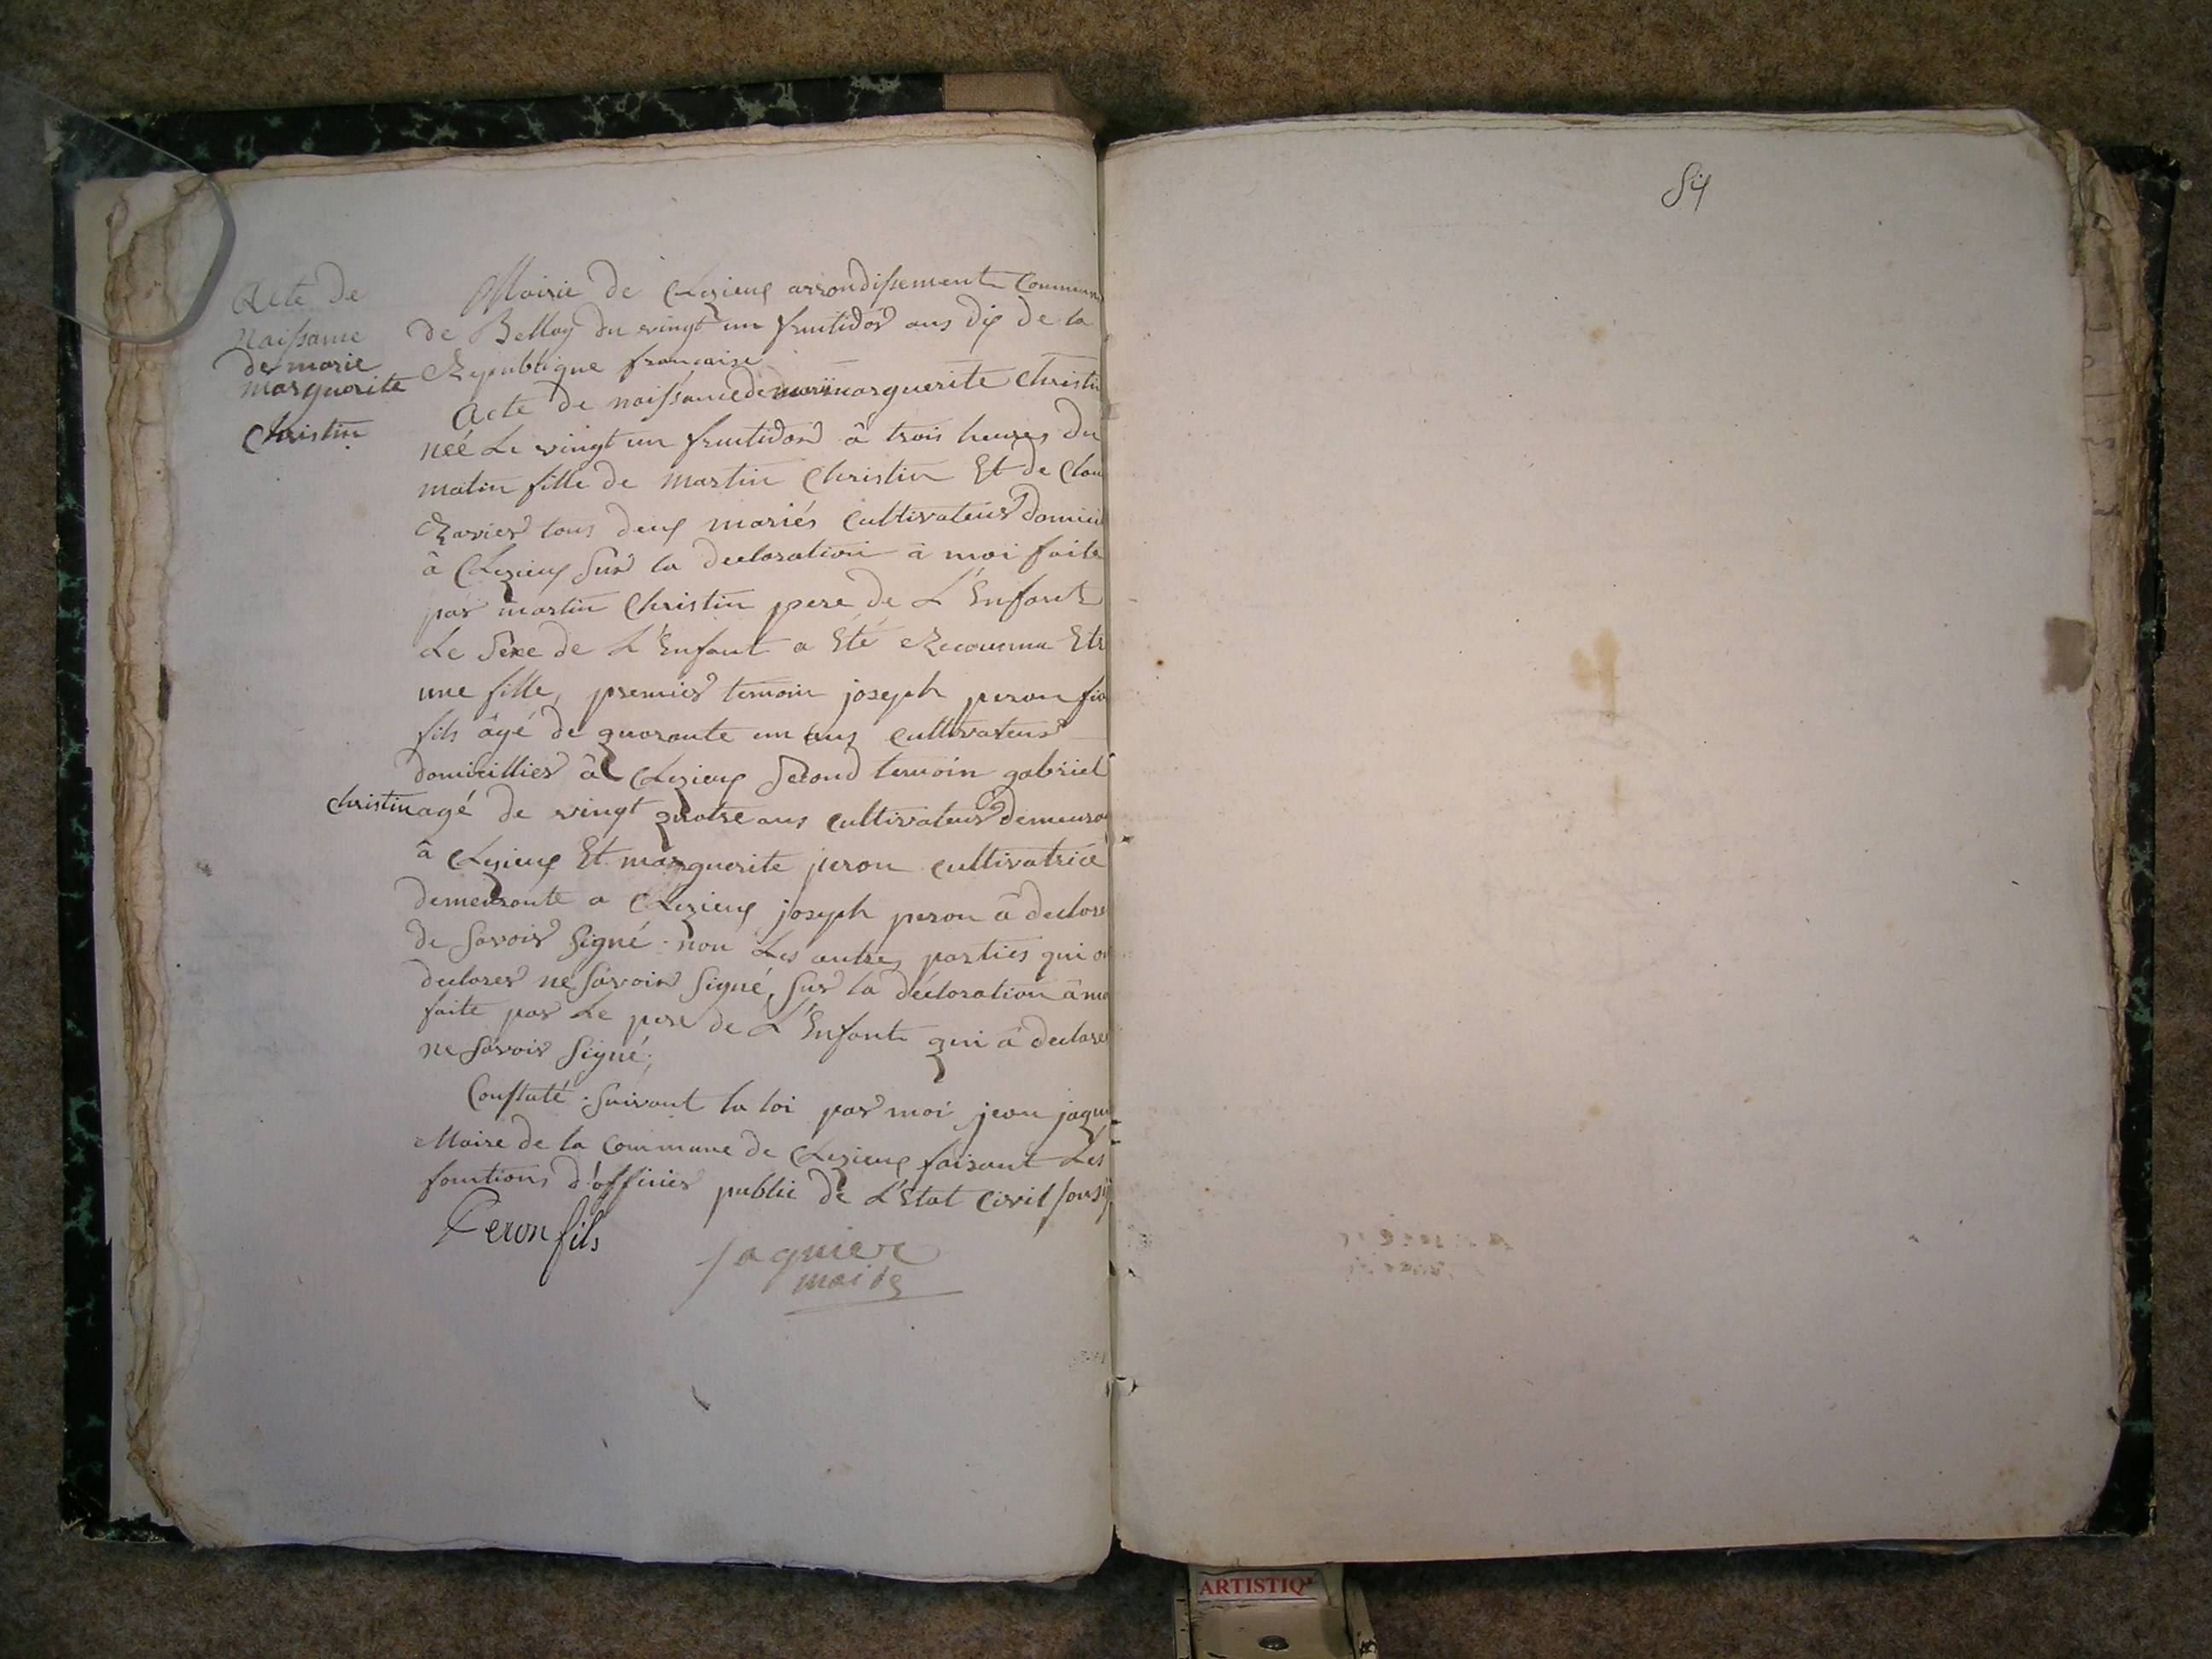 Six
Acte de
Naissance
de marie
marguerite
Christin
Mairie de Chezieux arrondissement Commun
de Belley du vingt un fructidor ans dix de la
Republique française
Acte de naissance de marie marguerite Christin
néé Le vingt un fructidor â trois heures du
matin fille de martin Christin Et de Clau
Ravier tous deux mariés Cultivateur domici
â Chezieux Sur la declaration à moi faite
par martin Christin pere de L'Enfant
Le Sexe de L'Enfant a Été Reconnu Etr
une fille, premier temoin joseph peron
fils âgé de quarante un ans cultivateur
domicillier â Chezieux Second temoin gabriel
christin agé de vingt quatre ans cultivateur demeura
â Chezieux Et marguerite peron cultivatrice
demeurante a Chezieux joseph peron â declare
de Savoir Signé non Les autres parties qui o
declarer ne Savoir Signé, Sur la déclaration â mo
faite par Le pere de L'Enfant qui â declarer
ne Savoir Signé,
Constaté Suivant la loi par moi jean jaqui
Maire de la Commune de Chezieux faisant Les
fonctions d'officier public de L'Etat Civil Sousig
Peron fils
jaquier
maire
ARTISTIQ